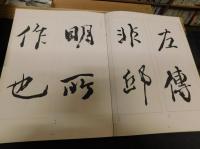 左傳
非邱
明所
作也